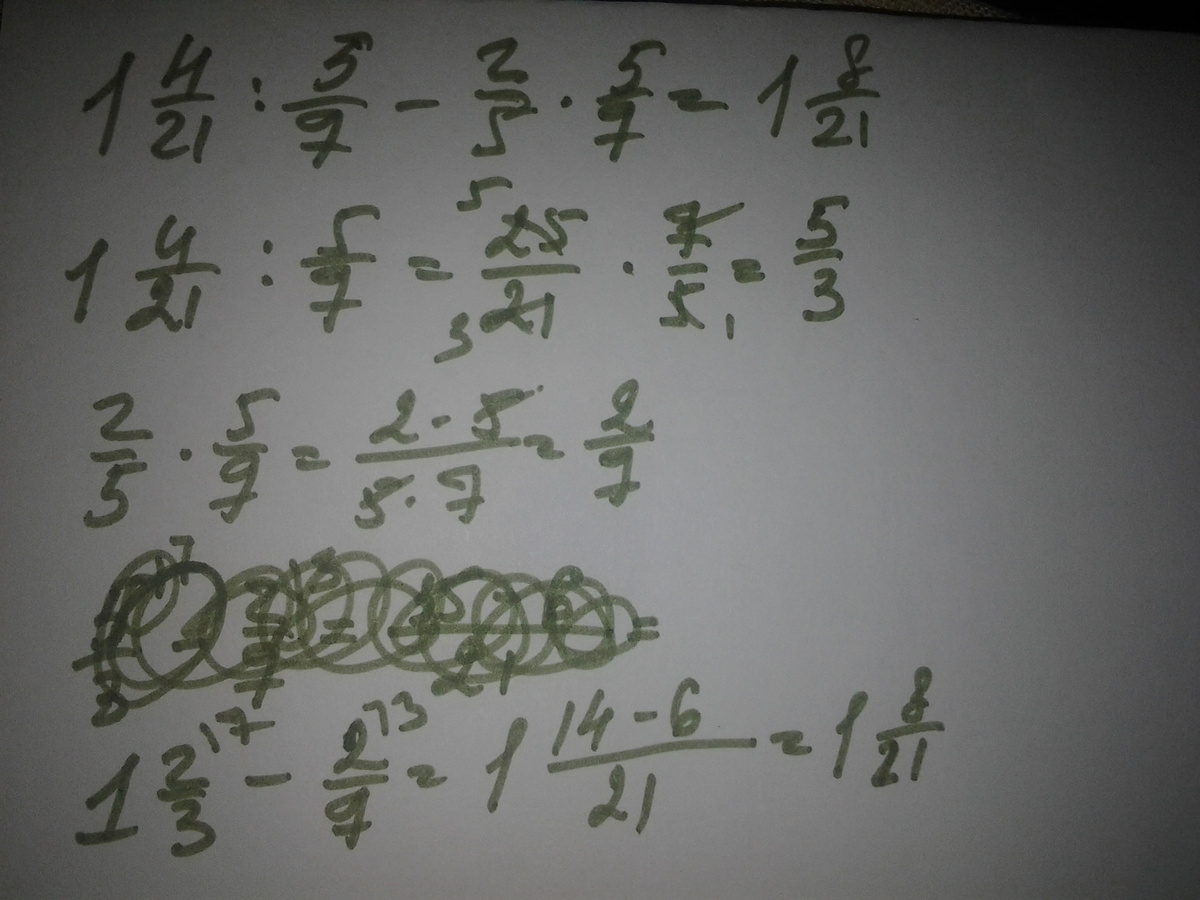 1 4/21 : 5/7 - 2/5 · 5/7 = 1 8/21
1 4/21 : 5/7 = 25/21 · 7/5 = 5/3
2/5 · 5/7 = 2·5/5·7 = 2/7
1 2/3 - 2/7 = 1 14-6/21 = 1 8/21